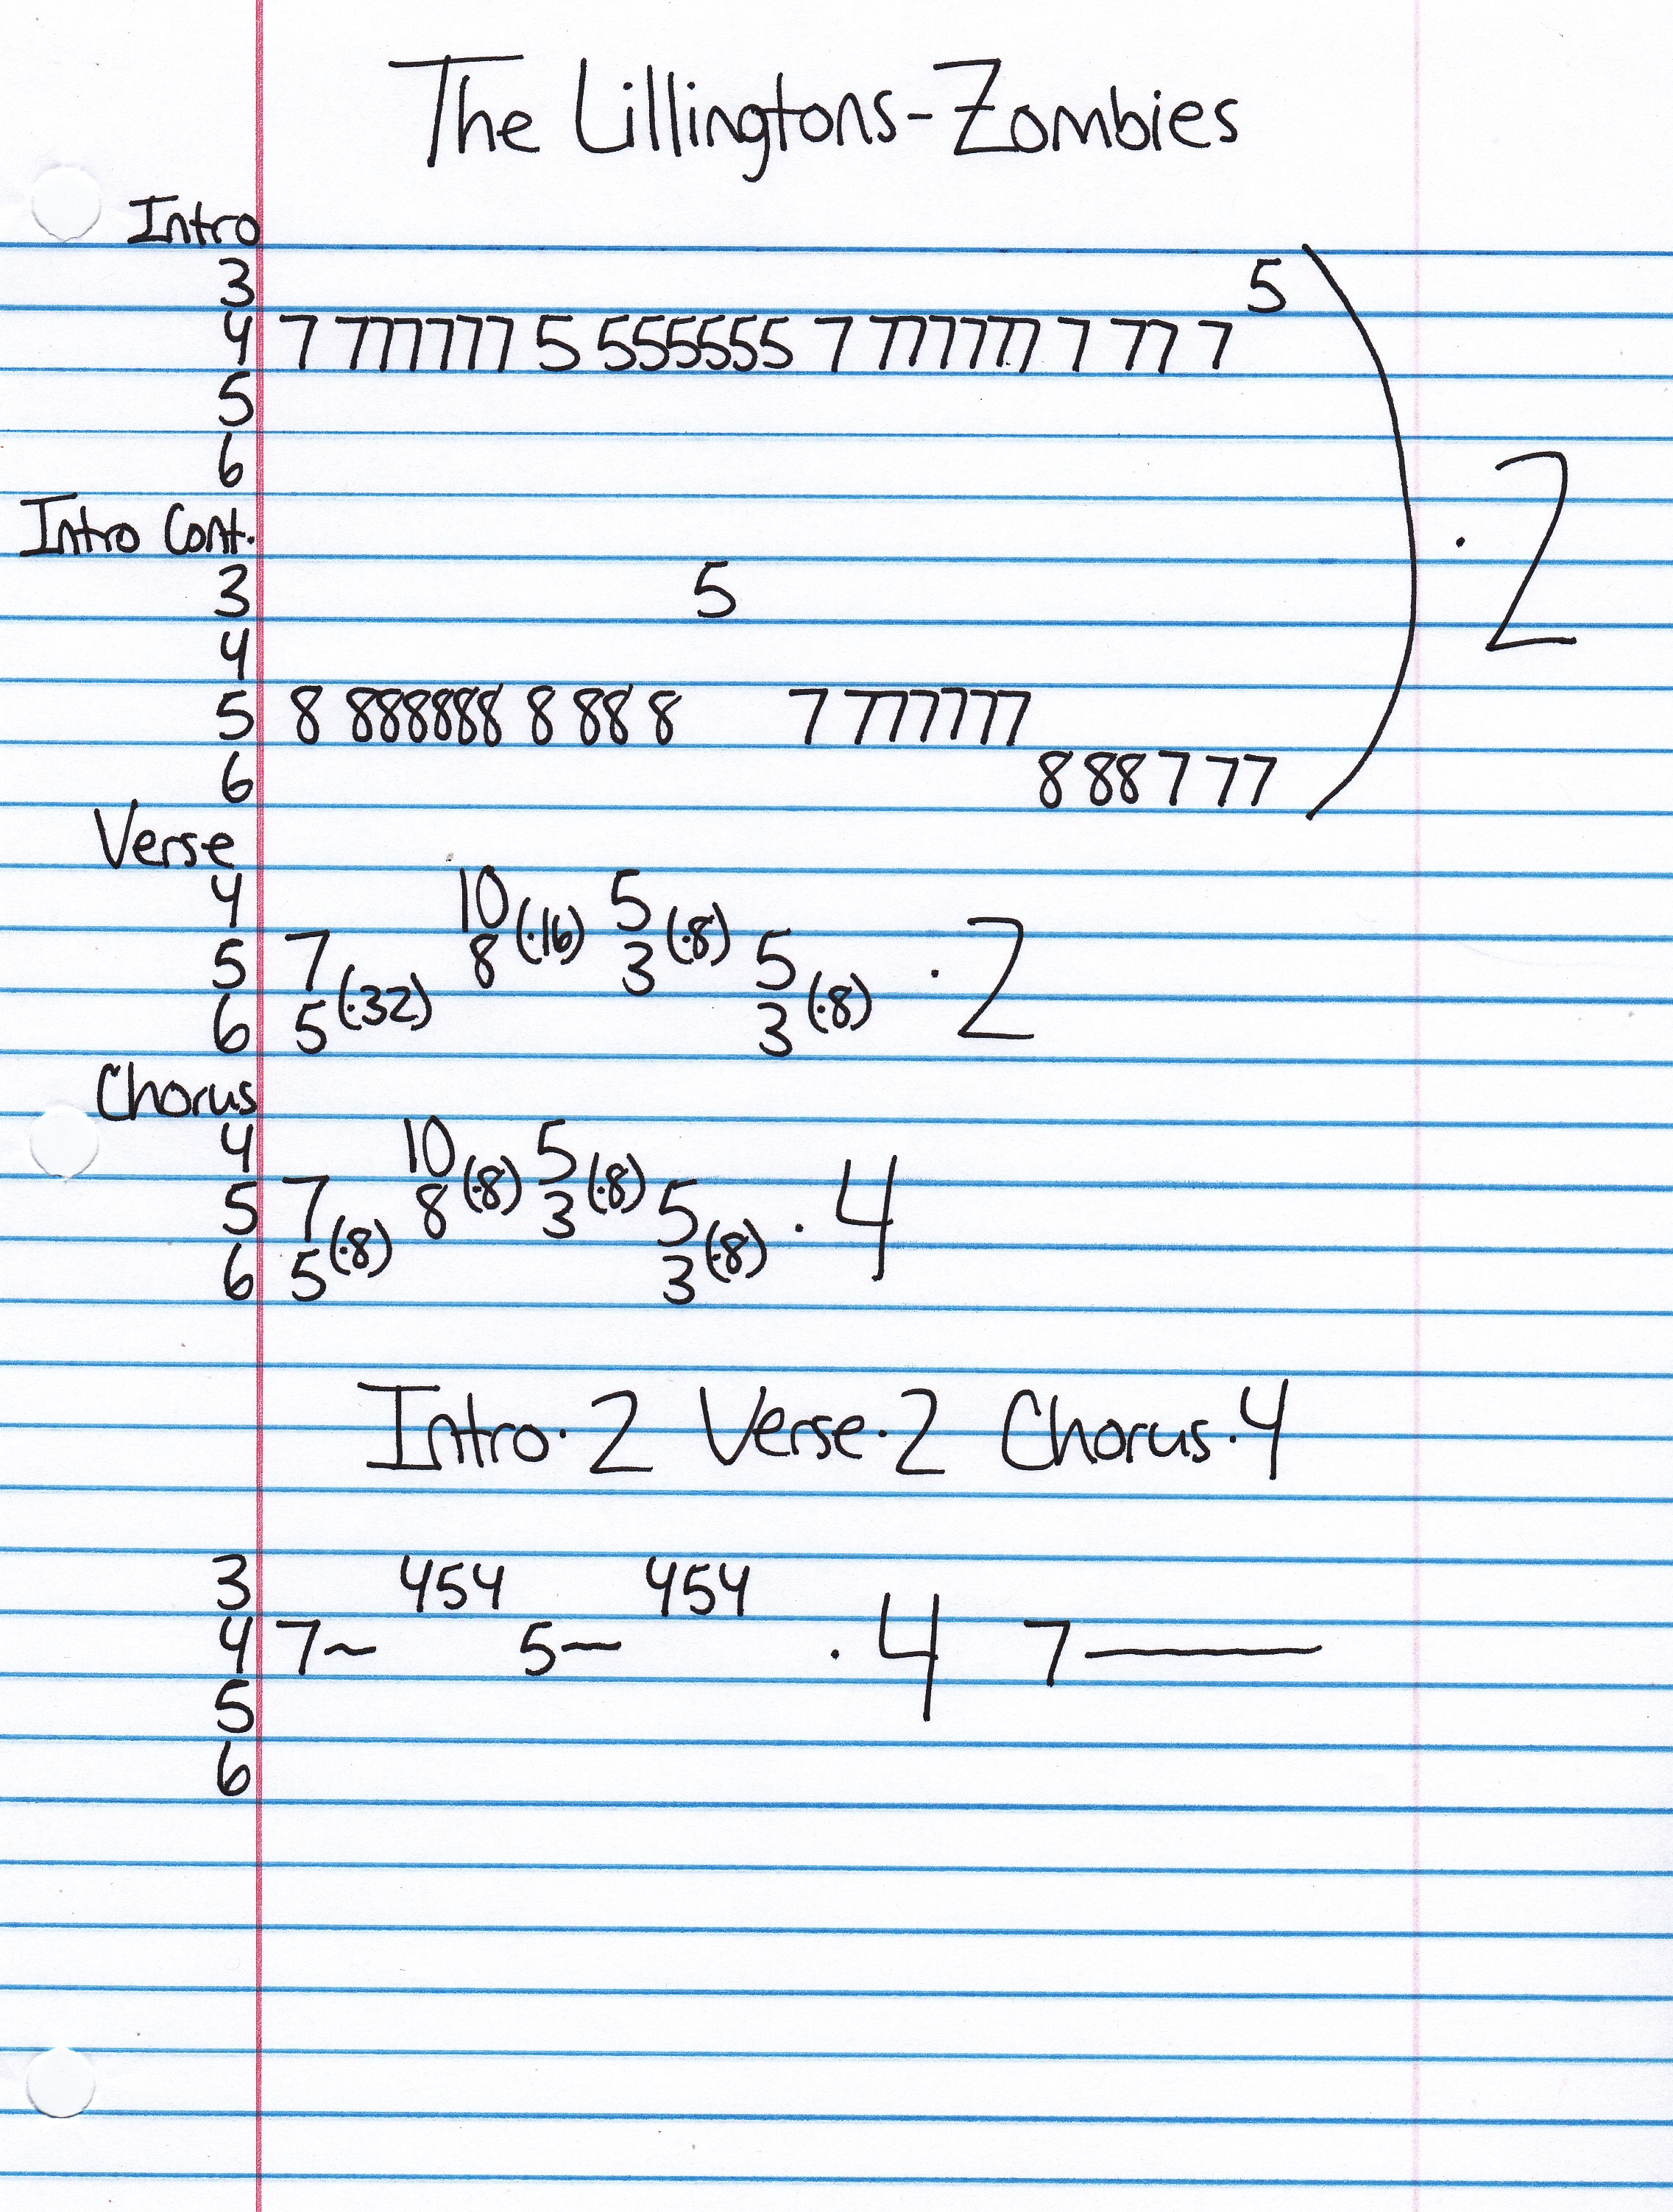 The Lillingtons-Zombies
Intro
3 5
4 7 777777 5 555555 7 777777 7 777 7
5
6
· 2
Intro Cont.
3 5
4
5 8 888888 8 888 8 7 777777
6 8 88 7 77
Verse
4 10 (·16) 5 (·8)
5 7 8 3 5 · 2
6 5 (·32) 3 (·8)
Chorus
4 10 (·8) 5 (·8)
5 7 8 3 5 · 4
6 5 (·8) 3 (·8)
Intro·2 Verse·2 Chorus·4
3 454 454
4 7~ 5~ · 4 7—
5
6